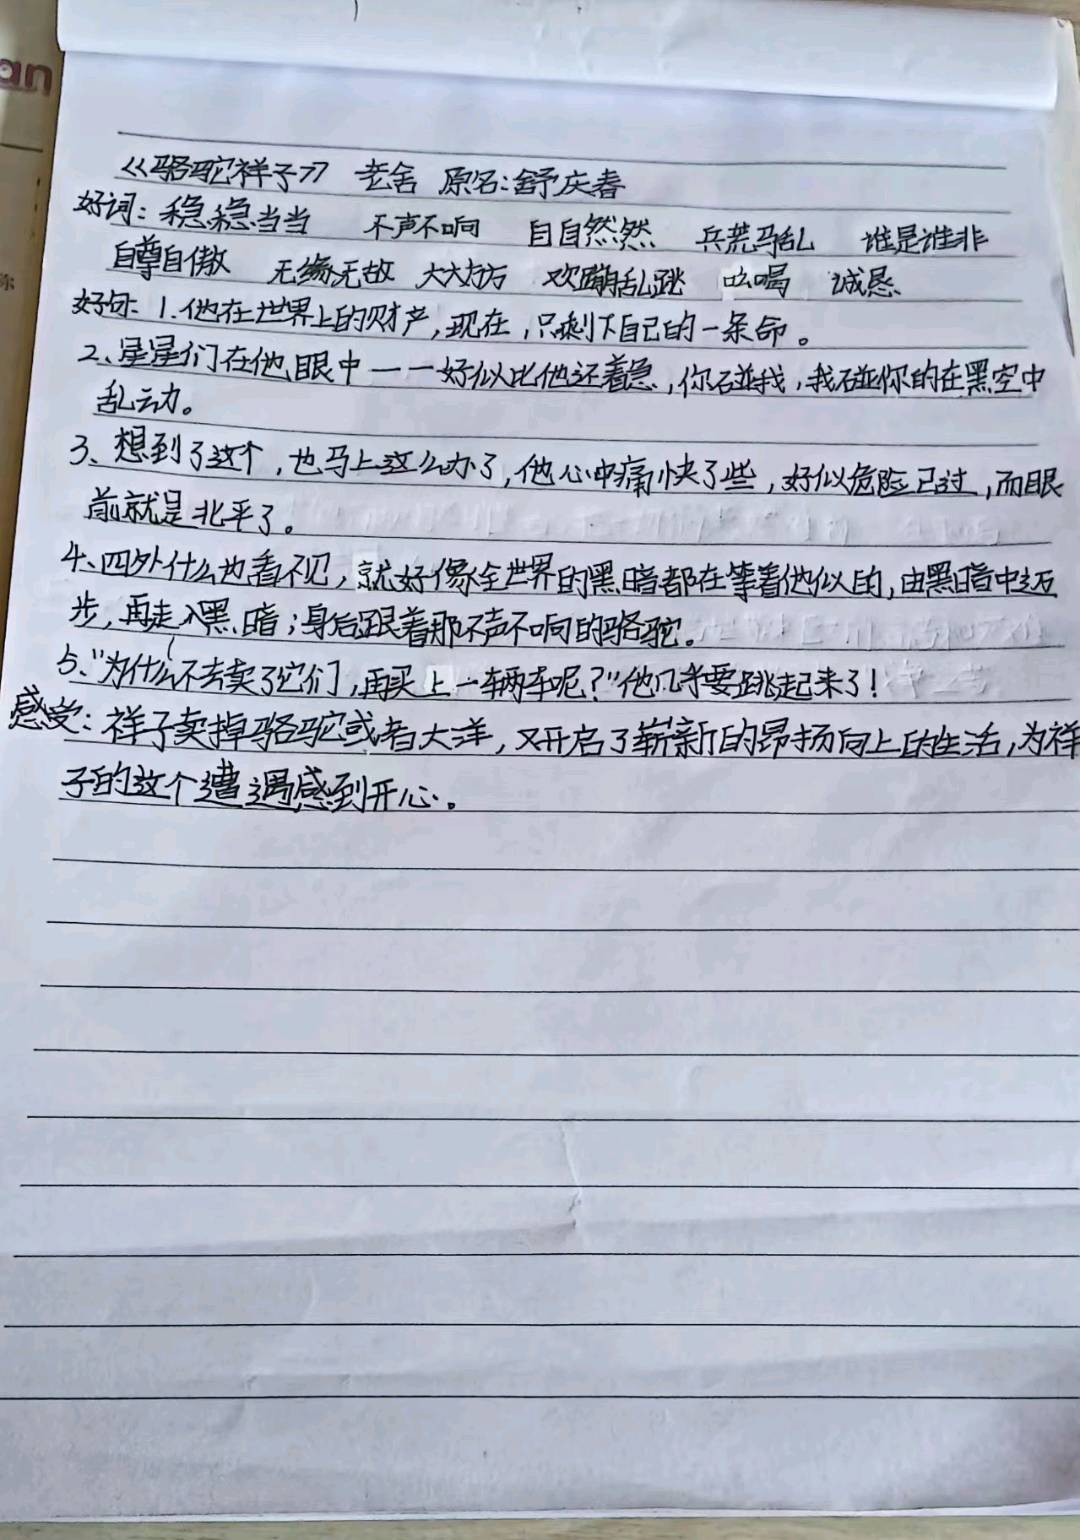 an
《骆驼祥子》 老舍 原名:舒庆春
好词:稳稳当当 不声不响 自自然然 兵荒马乱 谁是谁非
自尊自傲 无缘无故 大大方方 欢蹦乱跳 吆喝 诚恳
好句:1.他在世界上的财产,现在,只剩下自己的一条命。
2、星星们在他眼中一一好似比他还着急,你碰我,我碰你的在黑空中
乱动。
3、想到了这个,也马上这么办了,他心中痛快了些,好似危险已过,而眼
前就是北平了。
4、四外什么也看不见,就好像全世界的黑暗都在等着他似的,由黑暗中迈
步,再走入黑暗;身后跟着那不声不响的骆驼。
5、"为什么不去卖了它们,再买上一辆车呢?"他几乎要跳起来了!
感受:祥子卖掉骆驼或者大洋,又开启了崭新的昂扬向上的生活,为祥
子的这个遭遇感到开心。